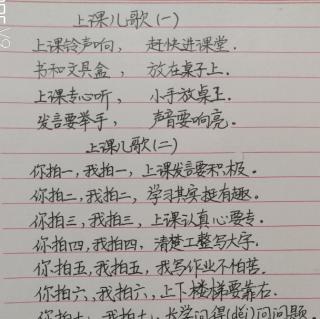 上课儿歌(一)
上课铃声响， 赶快进课堂.
书和文具盒， 放在桌子上.
上课专心听， 小手放桌正.
发言要举手， 声音要响亮.
上课儿歌(二)
你拍一,我拍一,上课发言要积极.
你拍二,我拍二,学习其实挺有趣.
你拍三,我拍三,上课认真心要专.
你拍四,我拍四,清楚工整写大字.
你拍五,我拍五,我写作业不怕苦.
你拍六,我拍六,上下楼梯要靠右.
你拍七,我拍七,